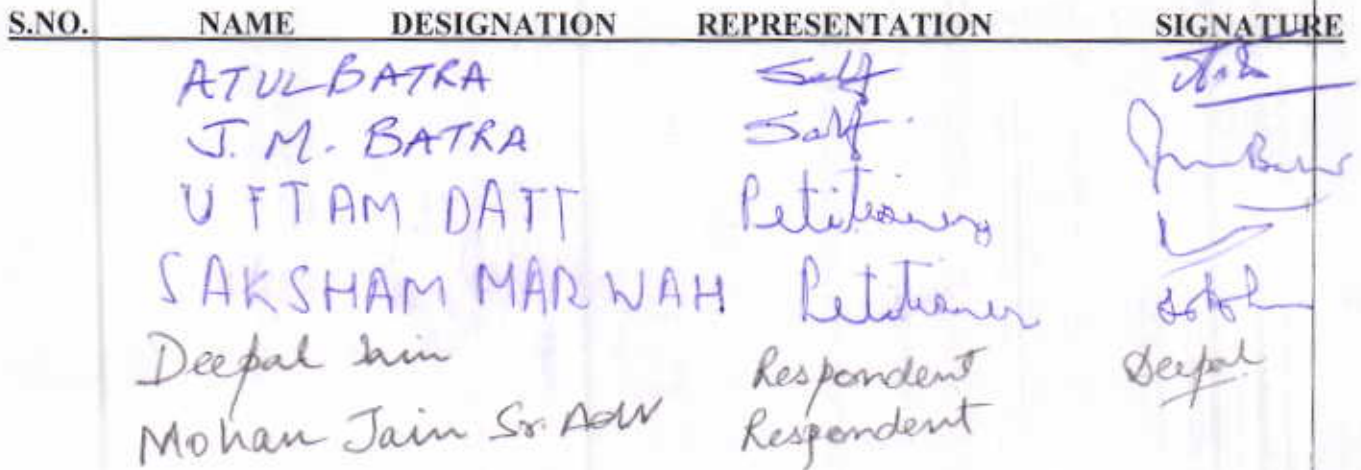 S.NO. NAME DESIGNATION REPRESENTATION SIGNATURE
ATUL BATRA Self
J. M. BATRA Self.
UTTAM DATT Petitioner
SAKSHAM MARWAH Petitioner
Deepak Jain Respondent Deepak
Mohan Jain Sr. Adv Respondent